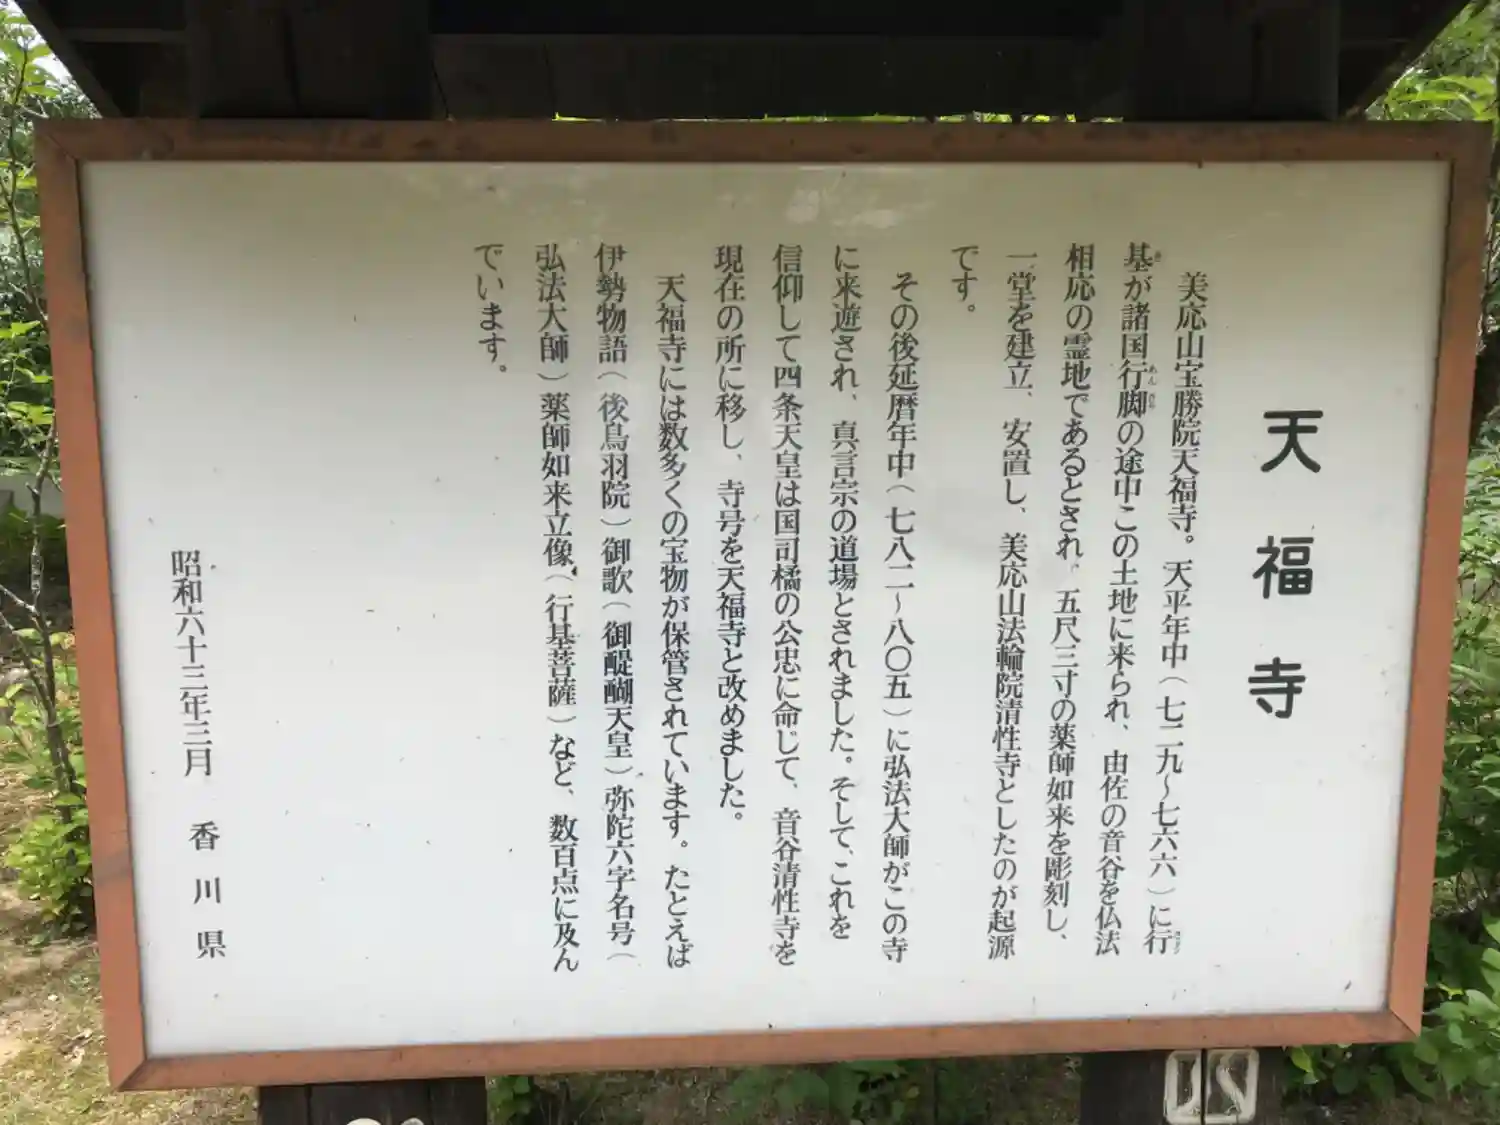 天福寺
美応山宝勝院天福寺。天平年中(七二九~七六六)に行
基が諸国行脚の途中この土地に来られ、由佐の音谷を仏法
相応の霊地であるとされ、五尺三寸の薬師如来を彫刻し、
一堂を建立、安置し、美応山法輪院清性寺としたのが起源
です。
その後延暦年中(七八二~八〇五)に弘法大師がこの寺
に来遊され、真言宗の道場とされました。そして、これを
信仰して四条天皇は国司橘の公忠に命じて、音谷清性寺を
現在の所に移し、寺号を天福寺と改めました。
天福寺には数多くの宝物が保管されています。たとえば
伊勢物語(後鳥羽院)御歌(御醍醐天皇)弥陀六字名号(
弘法大師)薬師如来立像(行基菩薩)など、数百点に及ん
でいます。
昭和六十三年三月 香川県